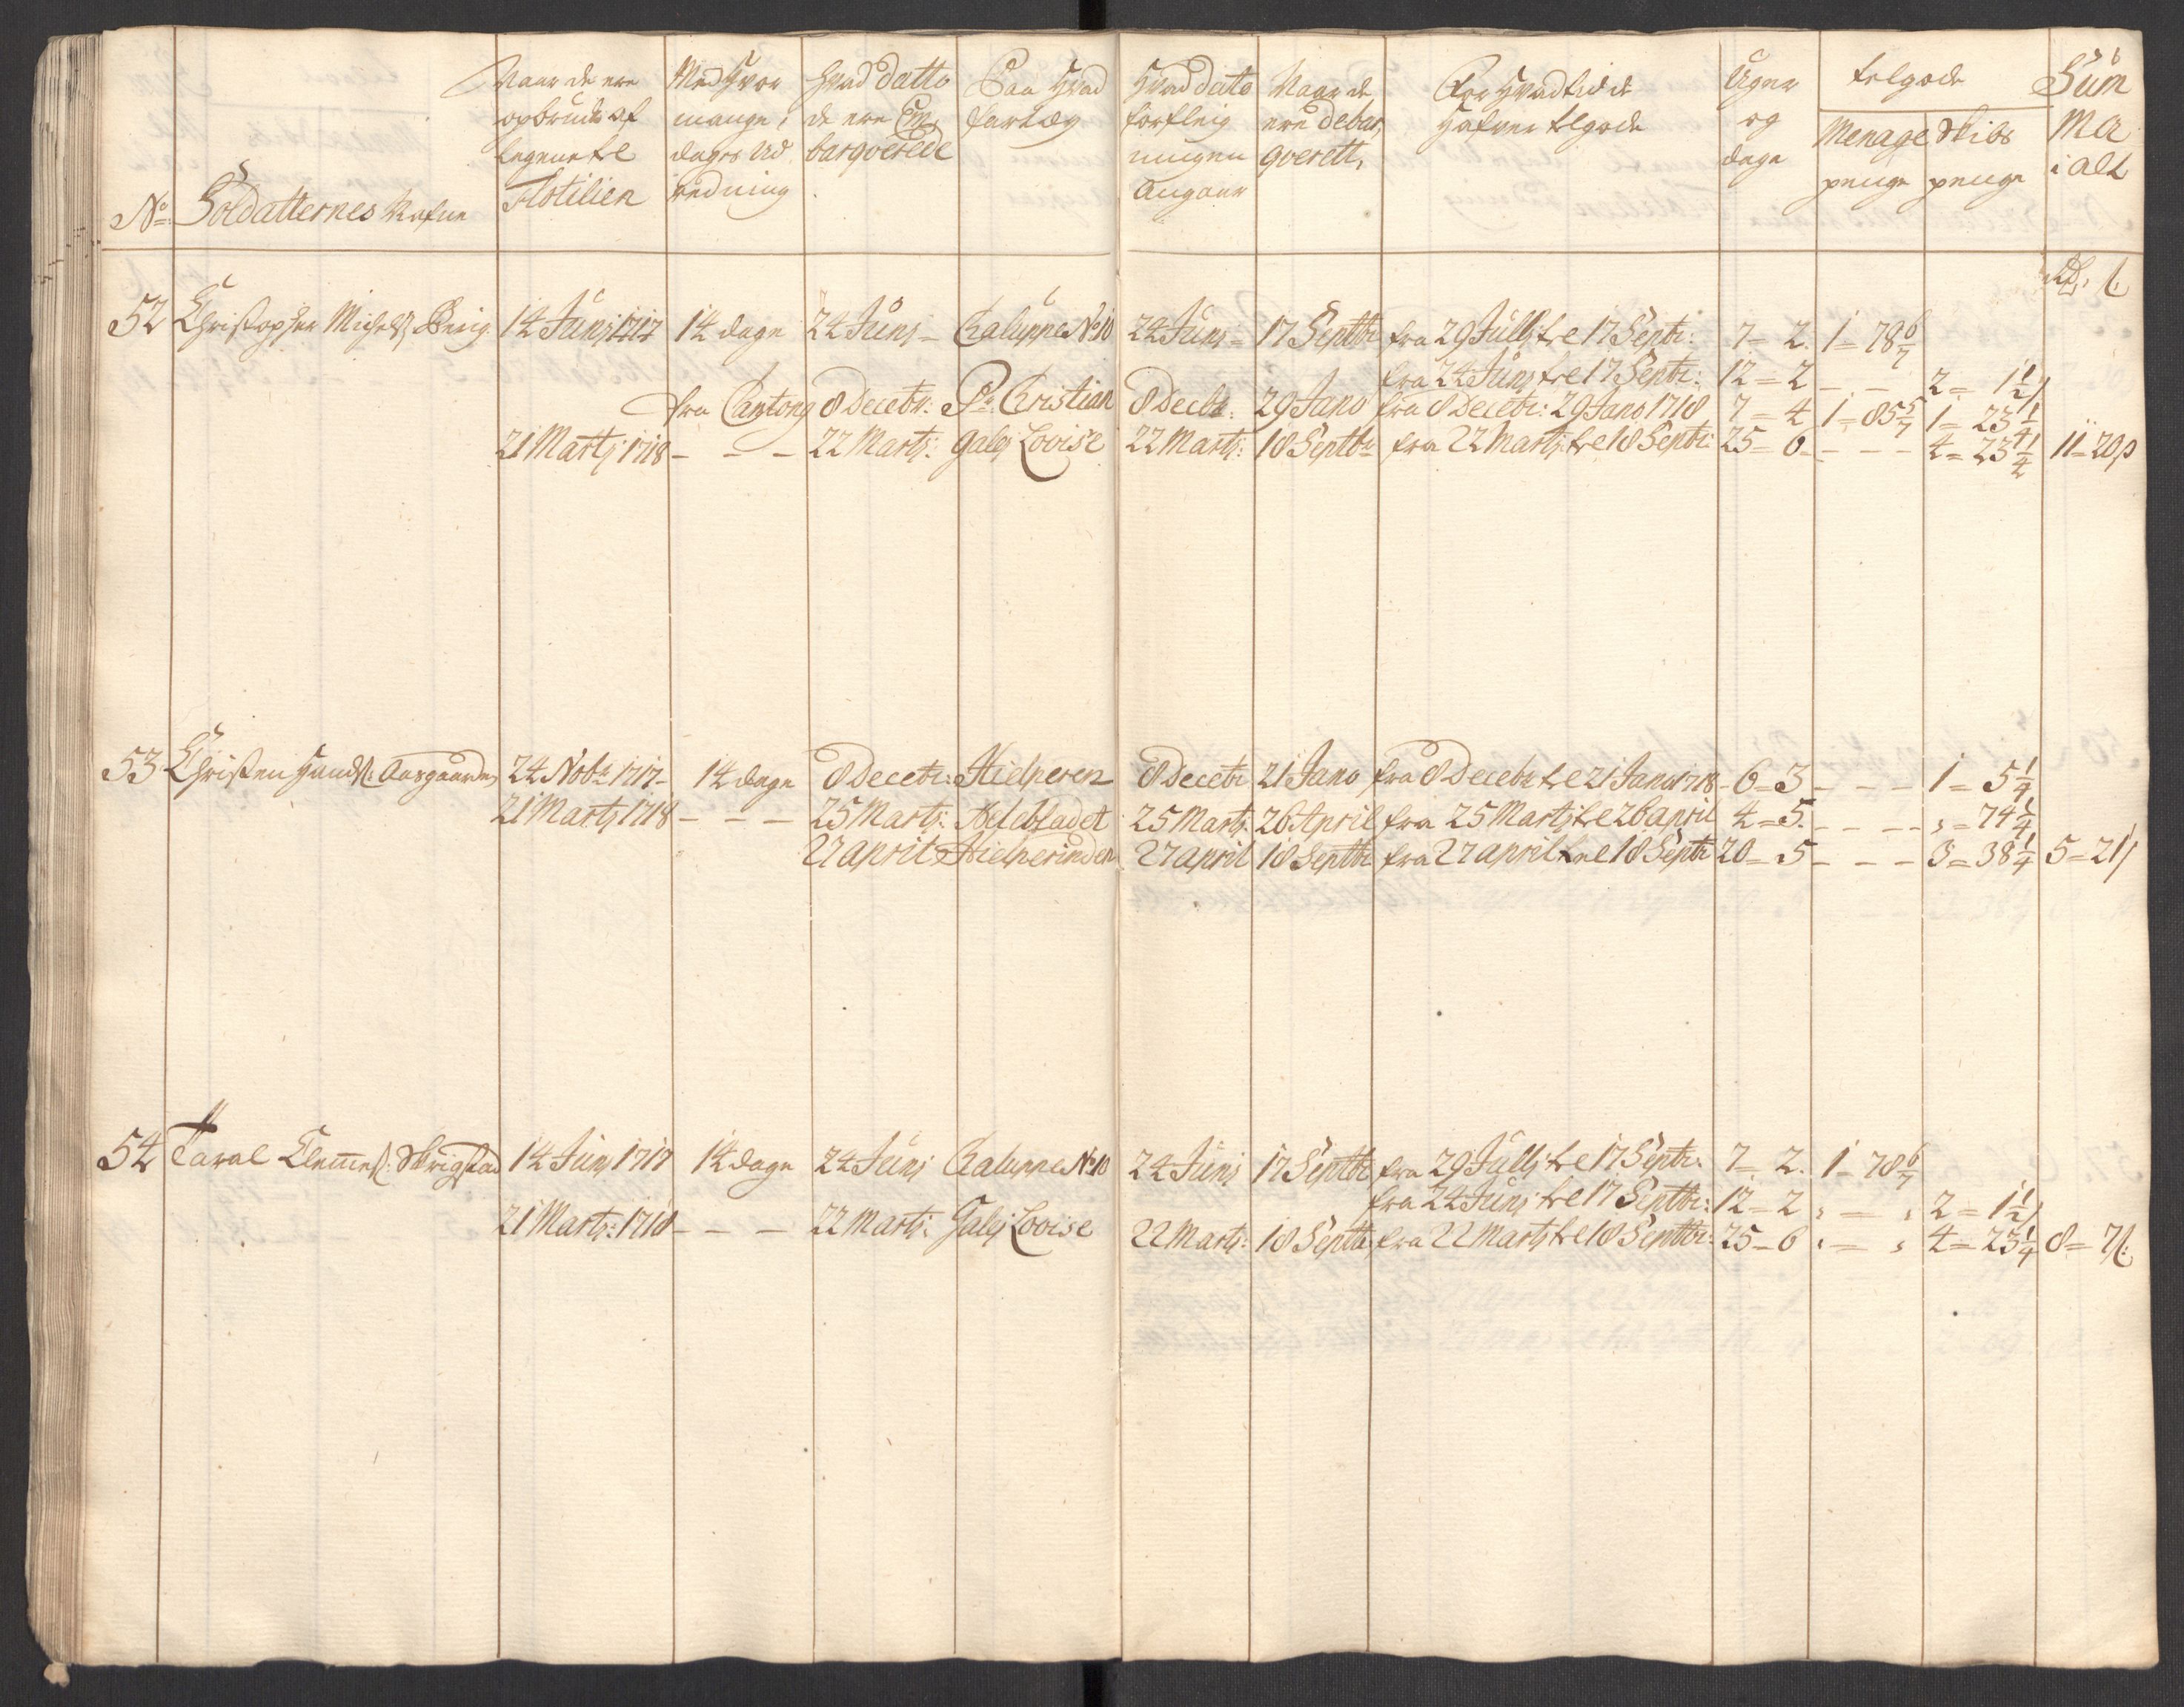 No: Soldatternes Nafne
Naar de ere opbrudt af legene til Flotilien
Med hvor mange dages Udredning
Hvad datto de ere Embarqverede
Paa Hvad fartøy
Hvad dato forfleigningen Angaar
Naar de ere debarqverett,
For Hvad tid de Hafver telgode
Uger og dage
telgode
Menage penge
Skibs penge
Summa i alt
52 Christopher Michels: 14 Junj 1717 14 dage 24 Junj - Chaluppe No 10 24 Junj - 17 Septbr fra 29 Julli til 17 Septr: 7 = 2. 1 = 78 6/7
fra 24 Junj til 17 Septr: 12 = 2 - - 2 = 1 1/2
fra Cantong 8 Decebr: Pr: Christian 8 Decbr: 29 Jano fra 8 Decebr: 29 Jano 1718 7 = 4 1 = 85 5/7 1 = 23 1/4
21 Martj 1718 - - - 22 Martj: Galej Lovise 22 Martj: 18 Septbr fra 22 Martj: til 18 Septr 25 = 6 - - - 4 = 23 1/4 11 = 20 ß
53 Christen Hands: Aasgaarden 24 Nobr 1717 - 14 dage 8 Decebr: Hielperen 8 Decebr 21 Jano fra 8 Decebr til 21 Jano 1718 - 6 = 3 - - - 1 = 5 1/4
21 Martj 1718 - - - 25 Martj: Neldebladet 25 Martj: 26 April fra 25 Martj til 26 april 4 = 5. - - - „ = 74 1/4
27 april Hielperinden 27 april 18 Septbr fra 27 april til 18 Septr 20 = 5 - - - 3 = 38 1/4 5 = 21 ß
54 Taral Clemmes: Skrigstad 14 Junj 1717 14 dage 24 Junj Chaluppe No 10 24 Junj 17 Septbr fra 29 Julli til 17 Septr: 7 = 2. 1 = 78 6/7
fra 24 Junj til 17 Septbr: 12 = 2 „ = „ 2 = 1 1/2
21 Martj: 1718 - - - 22 Martj: Galej Lovise 22 Martj: 18 Septbr fra 22 Martj til 18 Septbr: 25 = 6 „ = „ 4 = 23 1/4 8 = 7 ß: